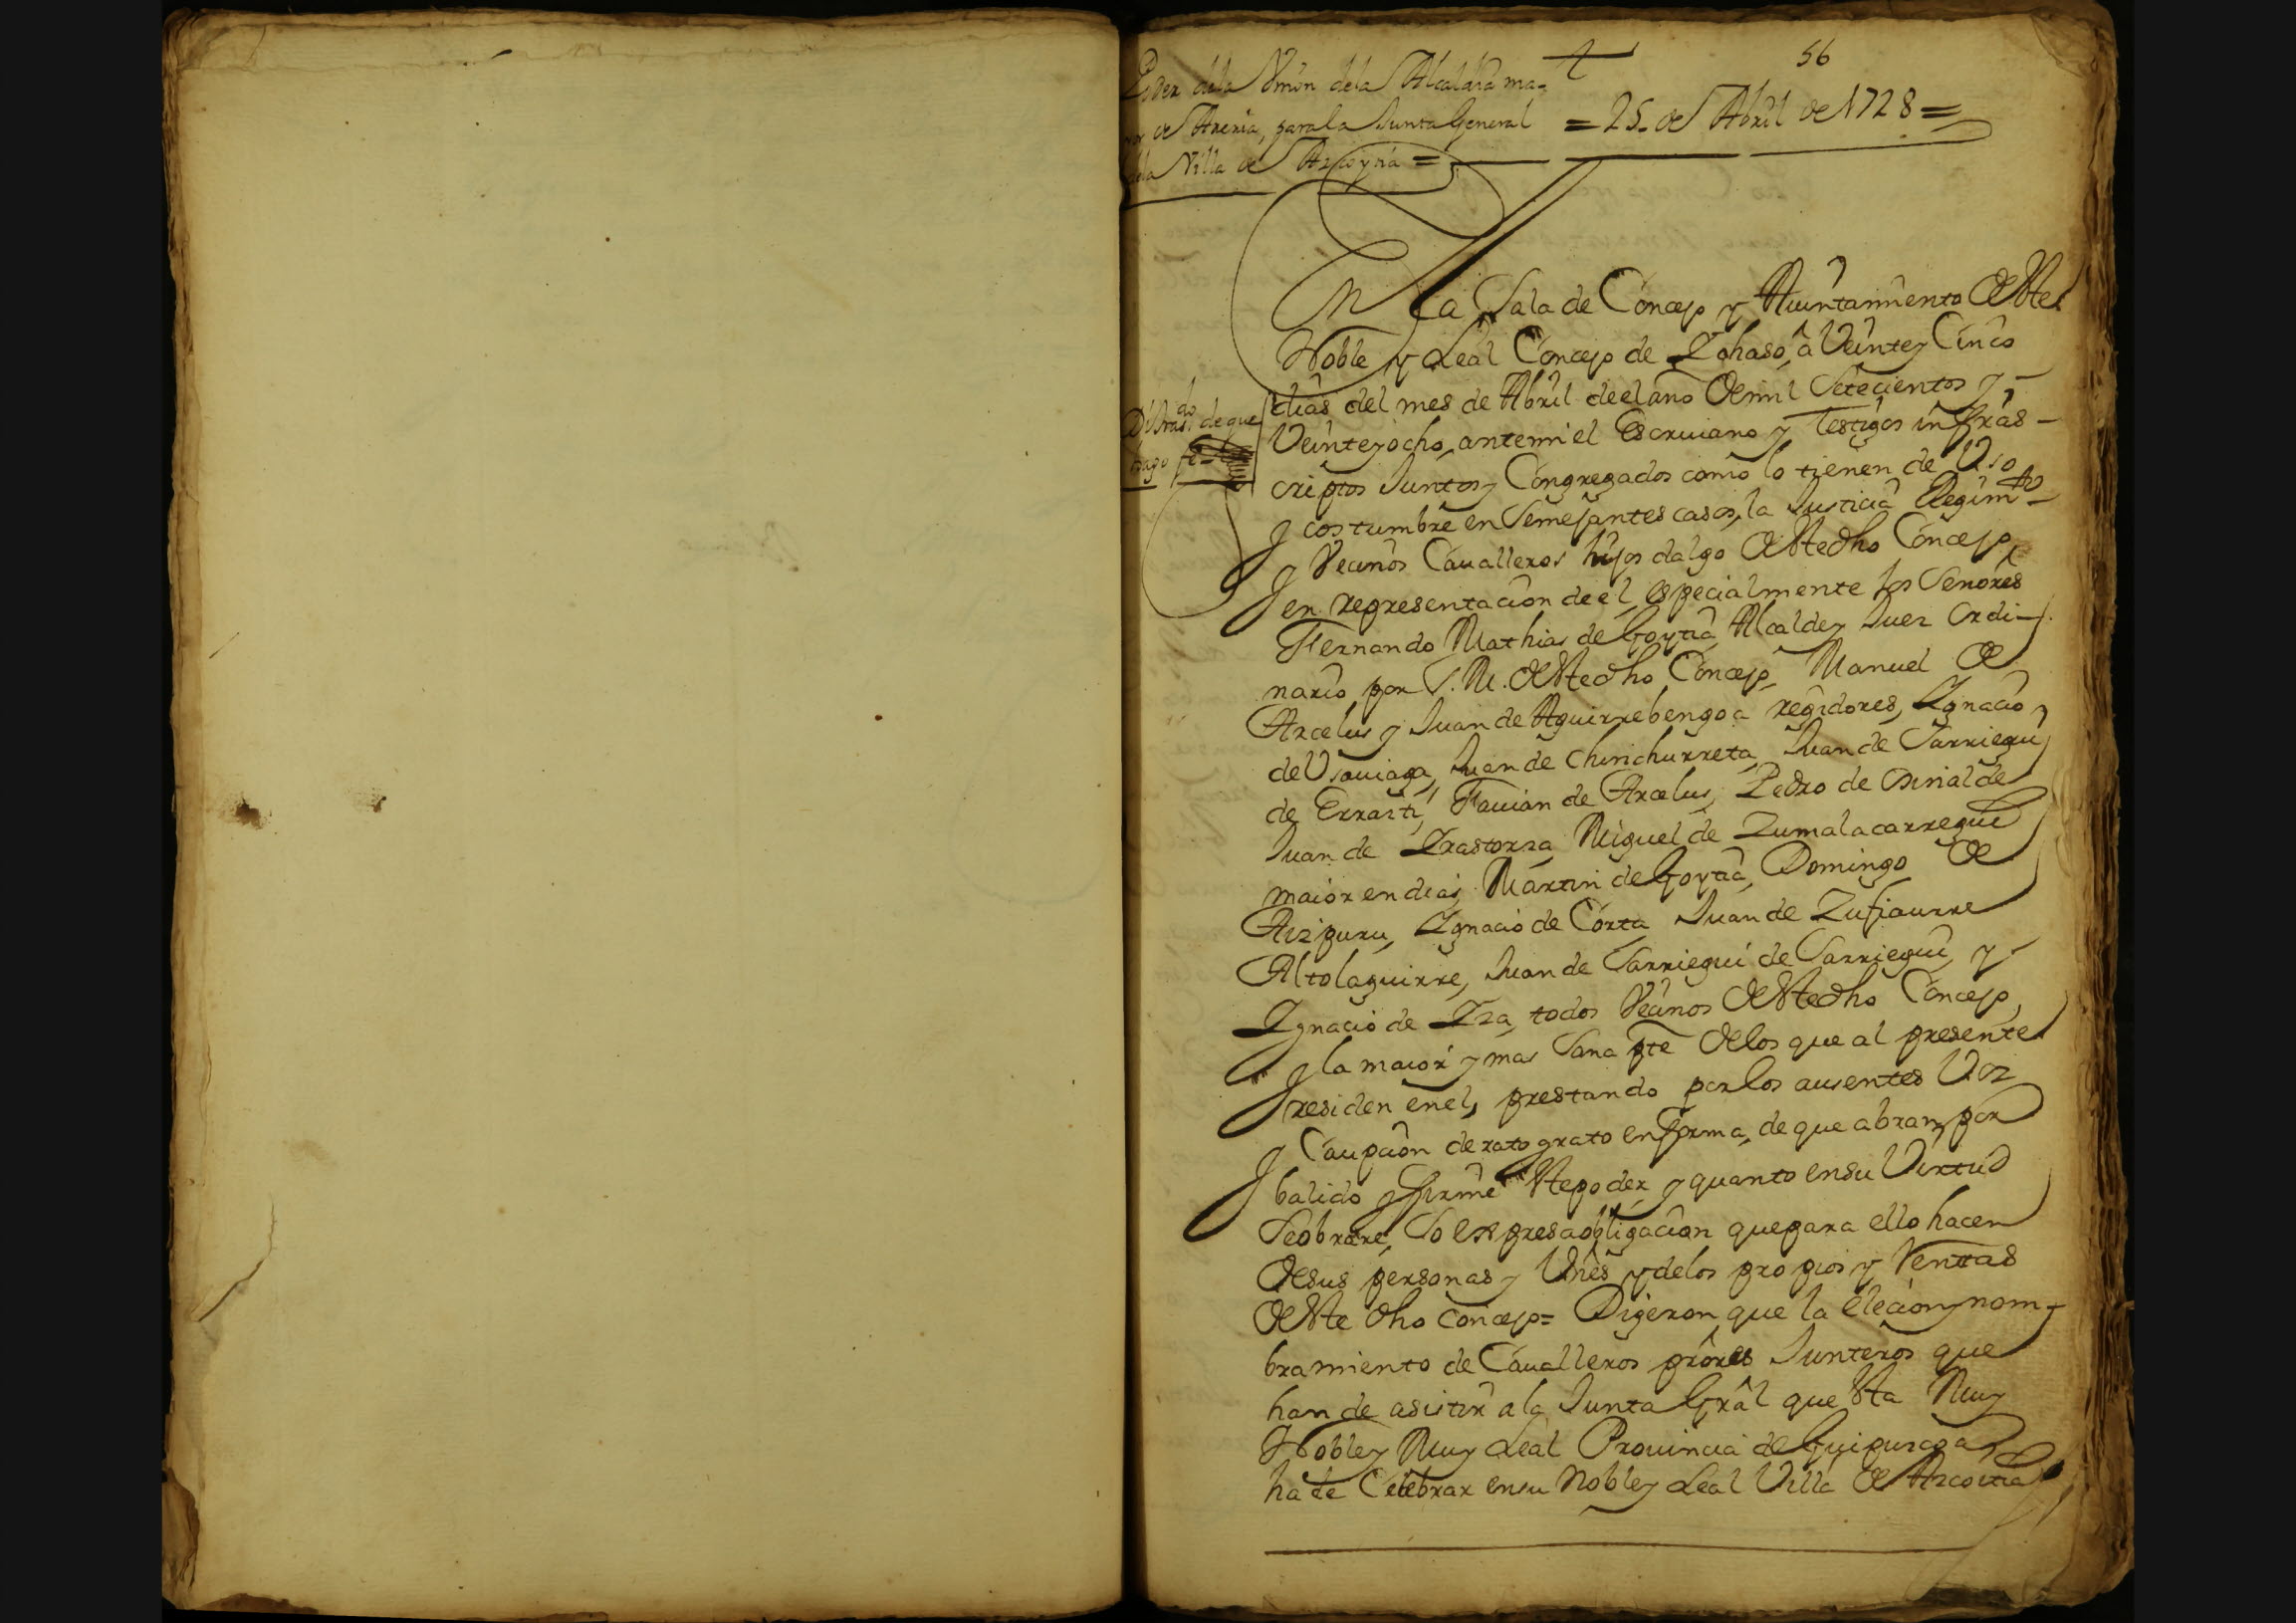 56
Poder dela Vnion dela Alcaldia ma-
yor de Areria, para la Junta General
dela Villa de Azcoytia =
= 25. de Abril de 1728 =
En la Sala de Concejo y Aiuntamiento de Vste
Noble y Leal Concejo de Lohaso, a Veinte y Cinco
dias del mes de Abril de el año de mil Setecientos y
Veinte y ocho, ante mi el Escriuano y Testigos infras-
criptos Juntos y Congregados como lo tienen de Vso
y costumbre en Semejantes casos, la Justicia Regimto
y Vecinos Caualleros hijos dalgo de Vste dho Concejo
y en representacion de el, especialmente los Señores
Fernando Mathias de Goytia Alcalde y Juez Ordi-
nario por S. M. de Vste dho Concejo, Manuel de
Arcelus y Juan de Aguirrebengoa regidores, Ygnacio
de Vsauiaga, Juan de Chinchurreta, Juan de Sarriegui
de Errasti, Fauian de Arcelus, Pedro de Osinalde
Juan de Yrastorza Miguel de Zumalacarregui
maior en dias, Martin de Goytia, Domingo de
Aizpuru, Ygnacio de Corta Juan de Zufiaurre
Altolaguirre, Juan de Sarriegui de Sarriegui, y
Ygnacio de Yza, todos Vecinos de Vste dho Concejo,
y la maior y mas Sana pte de los que al presente
residen en el, prestando por los ausentes Voz
y Caupcion de rato grato en forma, de que abran por
balido y firme Vste poder y quanto en su Virtud
Se obrare, So expresa obligacion que para ello hacen
de sus personas y Vnes y de los propios y Rentas
de Vste dho Concejo = Digeron que la elecion y nom-
bramiento de Caualleros prôres Junteros que
han de asistir a la Junta Grâl que Vsta Muy
Noble y Muy Leal Prouincia de Guipuzcoa
ha de Celebrar en su Noble y Leal Villa de Azcoitia
de que
hago fe